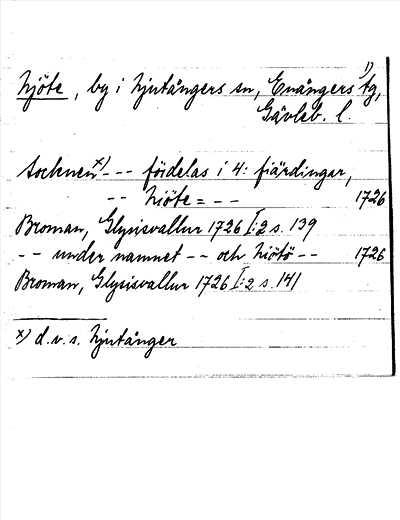 Njöte, by i Njutångers sn, Enångers 1) tg,
Gävleb. l.
socknen x) - - - fördelas i 4: fiärdingar,
- - Niöte = - - 1726
Broman, Glysisvallur 1726 I:2 s. 139
- - under namnet - - och Niötö - - 1726
Broman, Glysisvallur 1726 I:2 s. 141
x) d.v.s. Njutånger